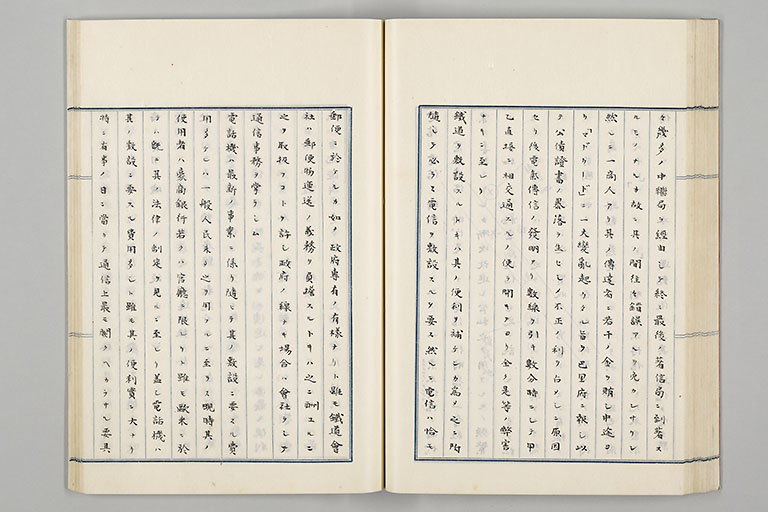 々幾多ノ中繼局ヲ經由シテ終ニ最後ノ著信局ニ到著ス
ルモノナルカ故ニ其ノ間往々錯誤アルヲ免カレサリシ
然ルニ一商人アリ其ノ傳送者ニ若干ノ金ヲ賄シ中途ヨ
リ「マドリード」ニ一大變亂起リタル旨ヲ巴里府ニ報シ以
テ公債證書ノ暴落ヲ生セシメ不正ノ利ヲ占メシニ原因
セリ後電氣傳信ノ發明アリ數線ヲ引キ數分時ニシテ甲
乙直接ニ相交通スルノ便ヲ開キタヨリ全ク是等ノ弊害
ナキニ至レリ
鐵道ヲ敷設スルトキハ其ノ便利ヲ補ケンカ爲メ之ニ附
隨シテ必ラス電信ヲ敷設スルヲ要ス然ルニ電信ハ恰モ
郵便ニ於ケルカ如ク政府專有ノ有樣ナリト雖モ鐵道會
社ハ郵便物運送ノ義務ヲ負擔スルトキハ之ニ酬ユルニ
之ヲ取扱フコトヲ許シ政府ノ線ナキ場合ハ會社ヲシテ
通信事務ヲ掌ラシム
電話機ハ最新ノ事業ニ係リ隨テ其ノ敷設ニ要スル費
用多ケレハ一般人民未タ之ヲ用フルニ至ラス現時其ノ
使用者ハ豪商銀行若クハ官廳ニ限レリト雖モ歐米ニ於
テハ既ニ其ノ法律ノ制定ヲ見ルニ至レリ蓋シ電話機ハ
其ノ敷設ニ要スル費用多シト雖モ其ノ便利實ニ大ナリ
特ニ有事ノ日ニ當リテ通信上最モ闕クヘカラサル要具